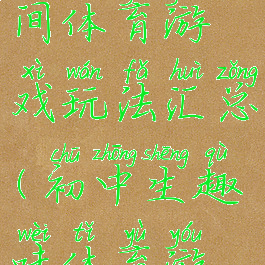 间体育游
xì wán fǎ huì zǒng
戏玩法汇总
chū zhōng shēng qù
(初中生趣
wèi tǐ yù yóu
味体育游